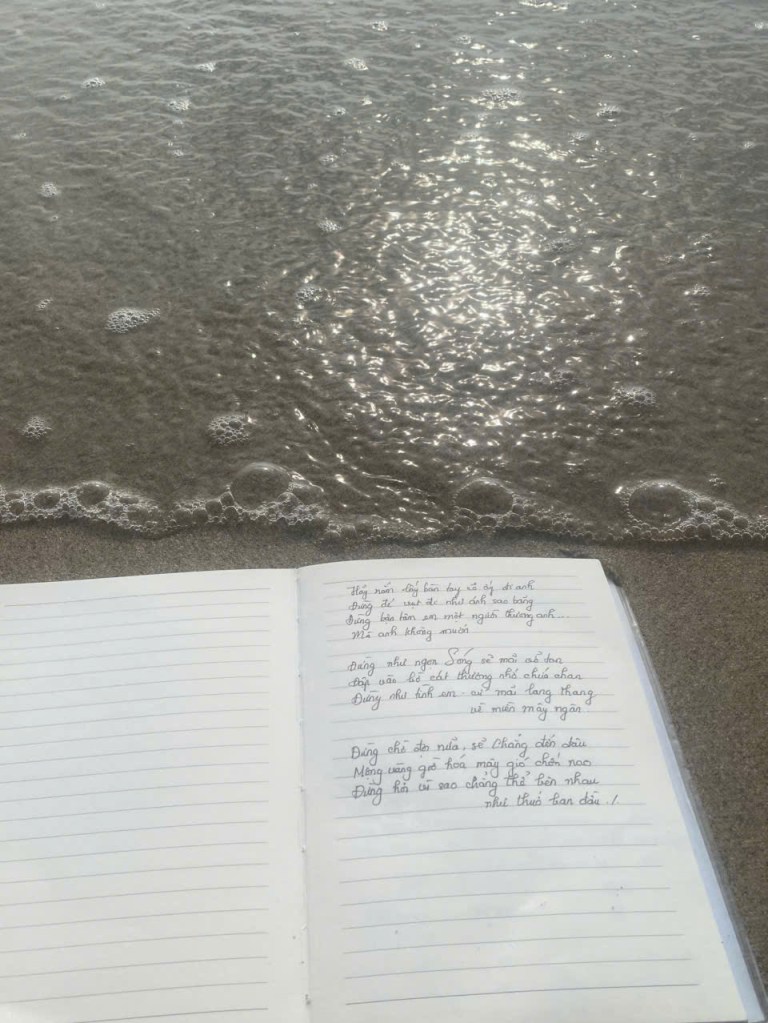 Hãy nắm lấy bàn tay cô ấy đi anh
Đừng để vụt đi như ánh sao băng
Đừng bận tâm em một người thương anh...
Mà anh không muốn
Đừng như ngọn Sóng sẽ mãi vỡ tan
Đập vào bờ cát thương nhớ chứa chan
Đừng như tình em cứ mãi lang thang
về miền mây ngàn
Đừng chờ đợi nữa, sẽ chẳng đến đâu
Mộng vàng giờ hoá mây gió chốn nao
Đừng hỏi vì sao chẳng thể bên nhau
như thuở ban đầu./